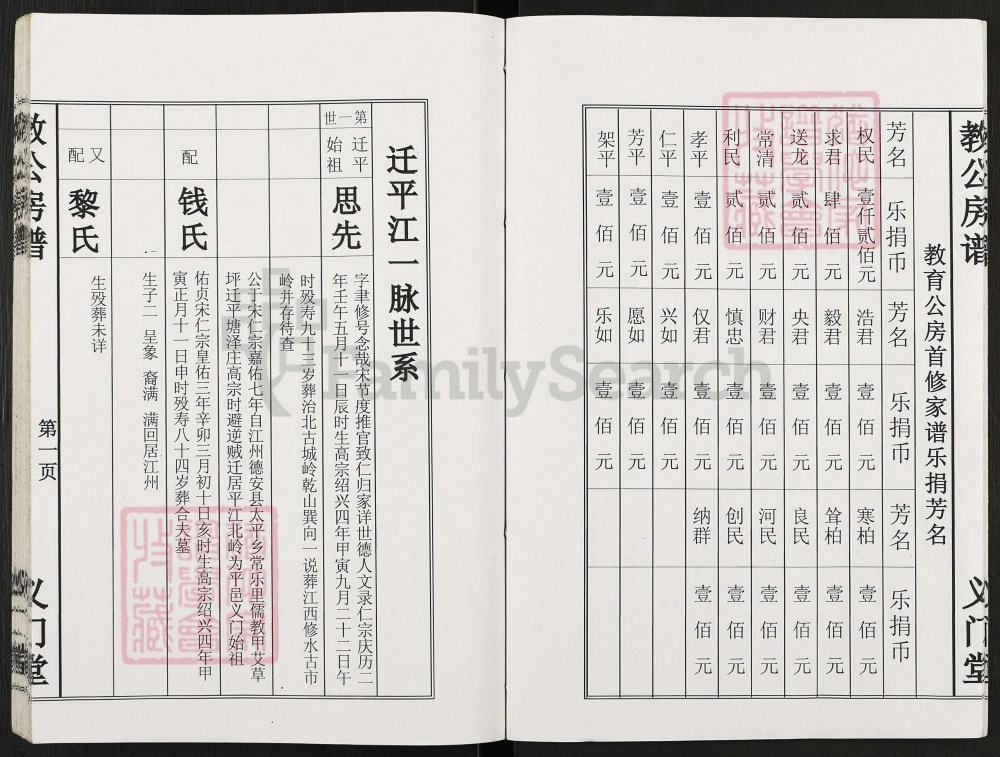 教公房谱 义门堂
教育公房首修家谱乐捐芳名
芳名 乐捐币 芳名 乐捐币 芳名 乐捐币
权民 壹仟贰佰元 浩君 壹佰元 寒柏 壹佰元
求君 肆佰元 毅君 壹佰元 耸柏 壹佰元
送龙 贰佰元 央君 壹佰元 良民 壹佰元
常清 贰佰元 财君 壹佰元 河民 壹佰元
利民 贰佰元 慎忠 壹佰元 创民 壹佰元
孝平 壹佰元 仅君 壹佰元 纳群 壹佰元
仁平 壹佰元 兴如 壹佰元
芳平 壹佰元 愿如 壹佰元
架平 壹佰元 乐如 壹佰元
迁平江一脉世系
第一世
迁平始祖 思先
字聿修号念哉宋节度推官致仁归家详世德人文录仁宗庆历二
年壬午五月十一日辰时生高宗绍兴四年甲寅九月二十二日午
时殁寿九十三岁葬治北古城岭乾山巽向一说葬江西修水古市
岭并存待查
公于宋仁宗嘉佑七年自江州德安县太平乡常乐里儒教甲艾草
坪迁平塘泽庄高宗时避逆贼迁居平江北岭为平邑义门始祖
配 钱氏
佑贞宋仁宗皇佑三年辛卯三月初十日亥时生高宗绍兴四年甲
寅正月十一日申时殁寿八十四岁葬合夫墓
生子二 呈象 裔满 满回居江州
又配 黎氏
生殁葬未详
教公房谱 第一页 义门堂
FamilySearch